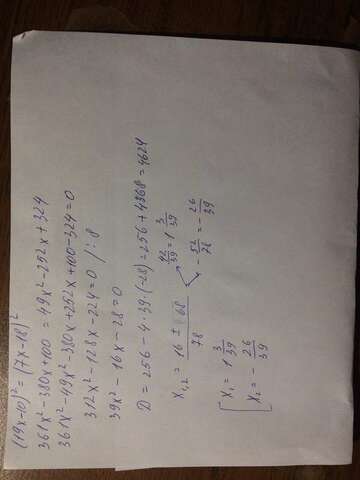 (19x-10)² = (7x-18)²
361x²-380x+100 = 49x²-252x+324
361x²-49x²-380x+252x+100-324=0
312x²-128x-224=0 /:8
39x²-16x-28=0
D = 256-4·39·(-28)=256+4368=4624
42/39 = 1 3/39
x₁,₂ = 16±68/78
-52/78 = -26/39
x₁ = 1 3/39
x₂ = -26/39